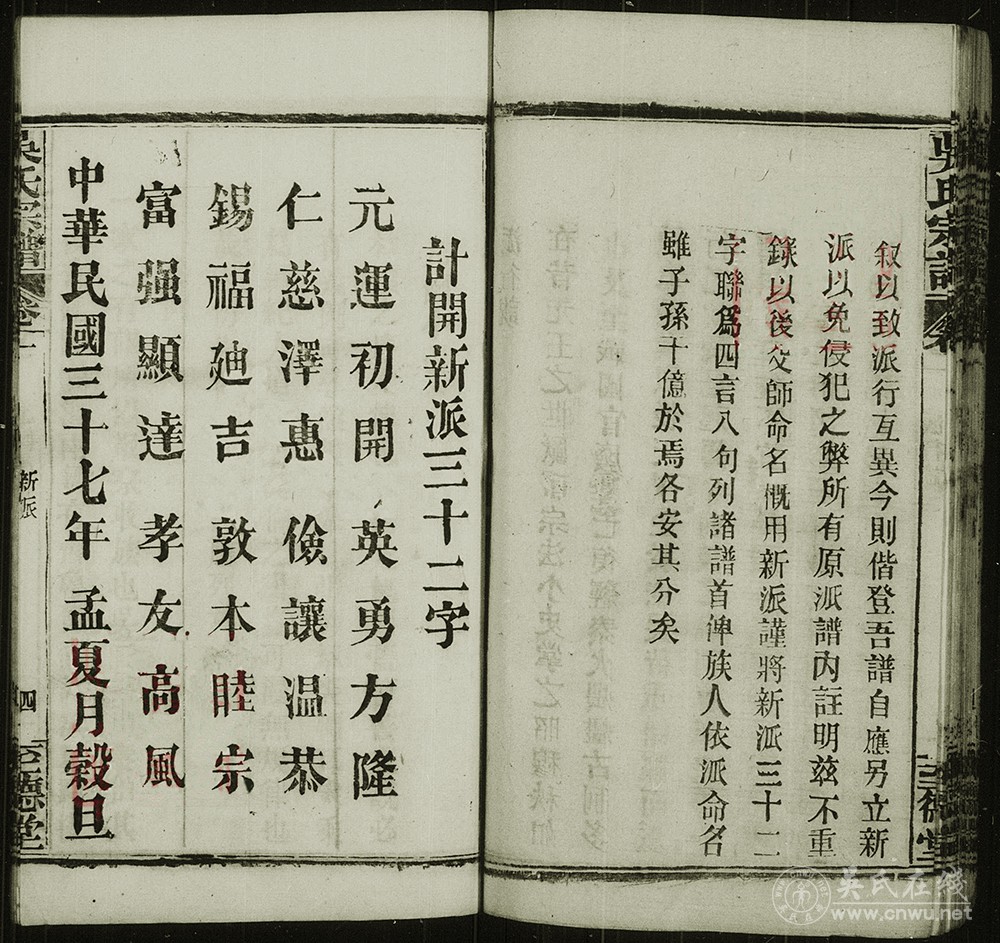 吳氏宗譜
敍以致派行互異今則偕登吾譜自應另立新
派以免侵犯之弊所有原派譜內註明兹不重
錄以後父師命名慨用新派謹將新派三十二
字聯爲四言八句列諸譜首俾族人依派命名
雖子孫千億於焉各安其分矣
至德堂
計開新派三十二字
元運初開英勇方隆
仁慈澤惠儉讓温恭
錫福廸吉敦本睦宗
富强顯達孝友高風
中華民國三十七年孟夏月穀旦
吳氏宗譜
新派
四
至德堂
吴氏在线
www.cnwu.net